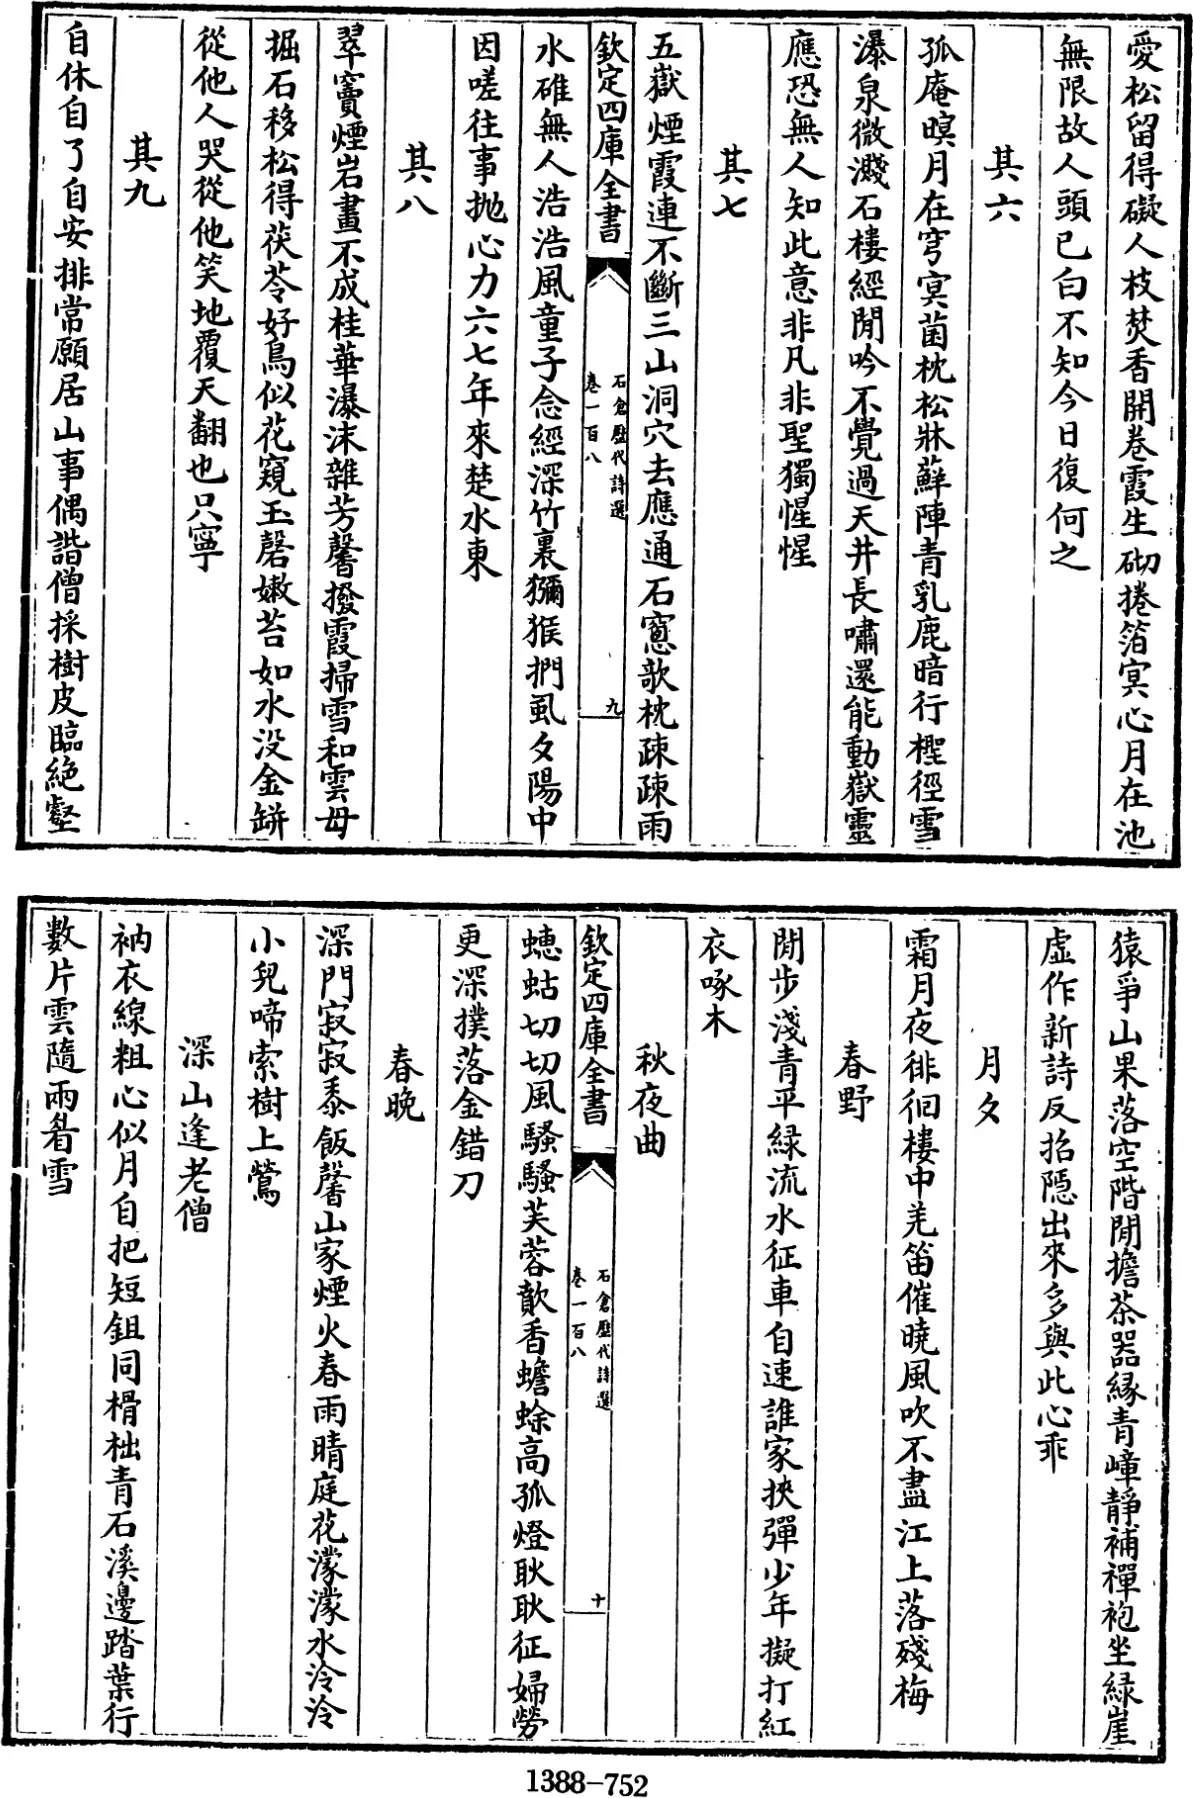 愛松留得礙人枝焚香開卷霞生砌捲箔冥心月在池
無限故人頭已白不知今日復何之
其六
孤庵暝月在穹冥菌枕松牀蘚陣青乳鹿暗行檉徑雪
瀑泉微濺石樓經閒吟不覺過天井長嘯還能動嶽靈
應恐無人知此意非凡非聖獨惺惺
其七
五嶽煙霞連不斷三山洞穴去應通石窻欹枕疎疎雨
欽定四庫全書
石倉歷代詩選
卷一百八
九
水碓無人浩浩風童子念經深竹裏獼猴捫虱夕陽中
因嗟往事抛心力六七年來楚水東
其八
翠竇煙岩畫不成桂華瀑沫雜芳馨撥霞掃雪和雲母
掘石移松得茯苓好鳥似花窺玉磬嫩苔如水没金缾
從他人哭從他笑地覆天翻也只寧
其九
自休自了自安排常願居山事偶諧僧採樹皮臨絶壑
猿爭山果落空階閒擔茶器緣青嶂靜補禪袍坐緑崖
虛作新詩反招隱出來多與此心乖
月夕
霜月夜徘徊樓中羌笛催曉風吹不盡江上落殘梅
春野
閒步淺青平緑流水征車自速誰家挾彈少年擬打紅
衣啄木
秋夜曲
欽定四庫全書
石倉歷代詩選
卷一百八
十
蟪蛄切切風騷騷芙蓉歕香蟾蜍高孤燈耿耿征婦勞
更深撲落金錯刀
春晚
深門寂寂黍飯馨山家煙火春雨晴庭花濛濛水泠泠
小兒啼索樹上鶯
深山逢老僧
衲衣線粗心似月自把短鉏同榾柮青石溪邊踏葉行
數片雲隨兩眉雪
1388-752